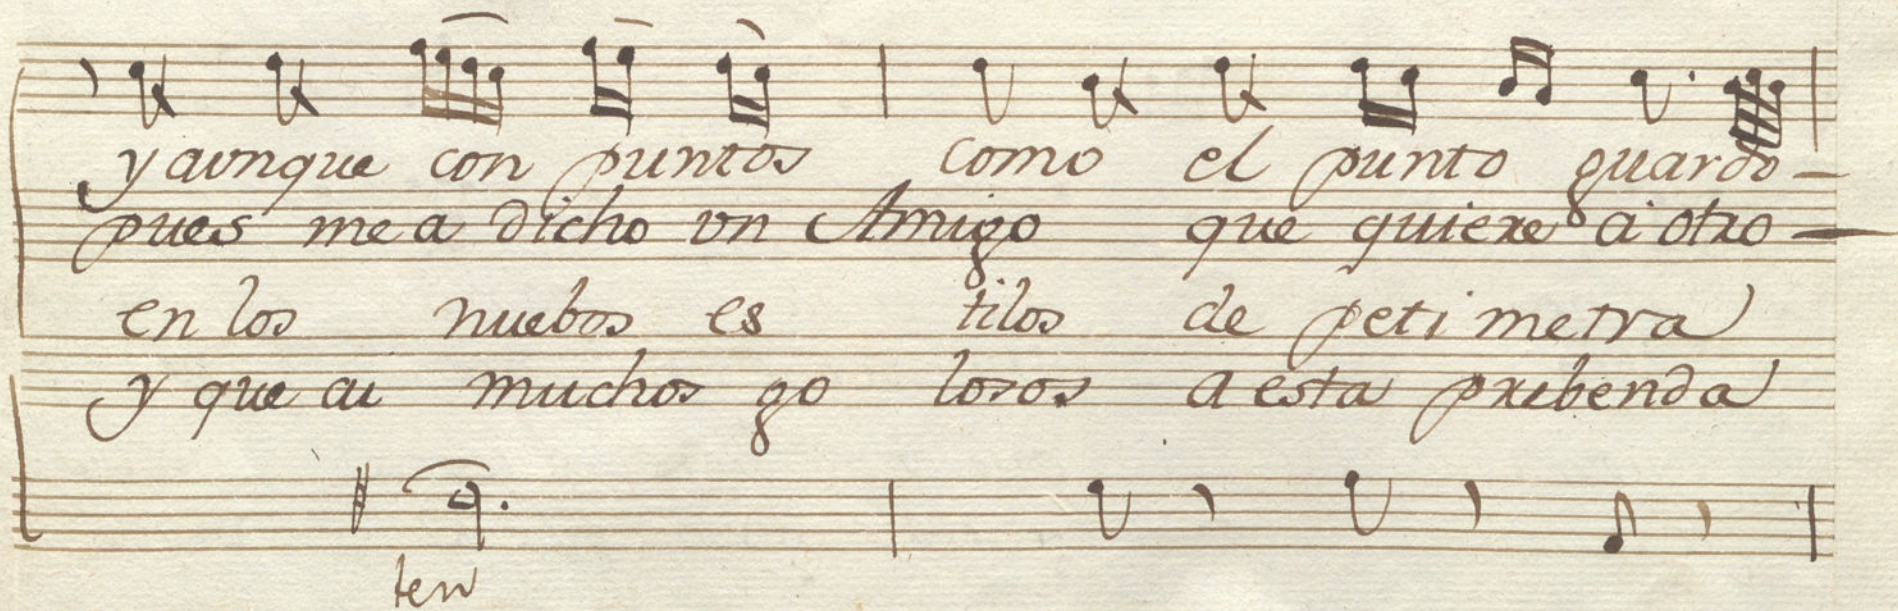 y aunque con puntos como el punto guardo
pues me a dicho vn Amigo que quiere a otro
en los nuebos es tilos de peti metra
y que ai muchos go losos a esta prebenda
ten